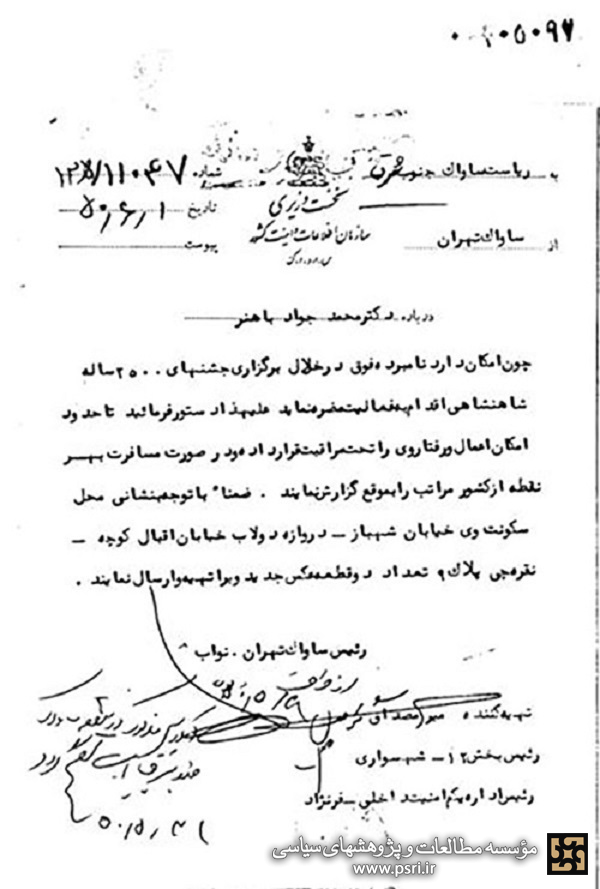 ۰۰۱۰۵۰۹۷
به ریاست ساواک جنوب شرق
شماره ۱۲ﻫ/۱۱۰۴۷
نخست وزیری
تاریخ ۵۰/۶/۱
سازمان اطلاعات و امنیت کشور
از ساواک تهران
پیوست
درباره دکتر محمد جواد باهنر
چون امکان دارد نامبرده فوق در خلال برگزاری جشنهای ۲۵۰۰ ساله
شاهنشاهی اقدام به فعالیت مضره نماید علیهذا دستور فرمائید تا حدود
امکان اعمال و رفتار وی را تحت مراقبت قرار داده و در صورت مسافرت بهر
نقطه از کشور مراتب را بموقع گزارش نمایند . ضمناً با توجه بنشانی محل
سکونت وی خیابان شهباز – دروازه دولاب خیابان اقبال کوچه –
نقره‌چی پلاک ۹ تعداد دو قطعه عکس جدید ویرا تهیه و ارسال نمایند .
رئیس ساواک تهران . نواب
تهیه کننده
رئیس بخش ۱۲ – شهسواری
رئیس اداره یکم امنیت داخلی – فرنژاد
۵۰/۵/۳۱
مؤسسه مطالعات و پژوهشهای سیاسی
www.psri.ir